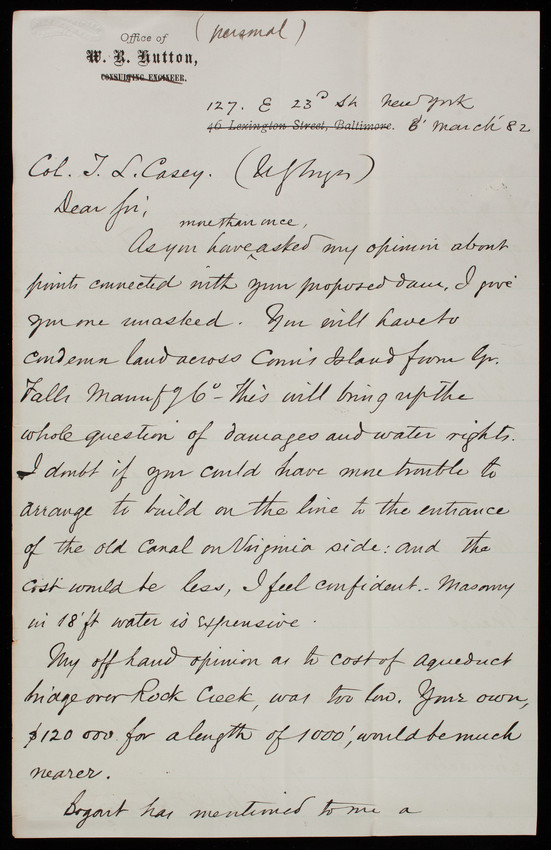 (personal)
Office of
W. R. Hutton,
CONSULTING ENGINEER.
127. E 23d St New York
46 Lexington Street, Baltimore. 8' March 82
Col. T. L. Casey. (U S Engrs)
Dear Sir,
more than once,
As you have asked my opinion about
points connected with your proposed dam, I give
you one unasked. You will have to
condemn land across Conn's Island from Gr.
Falls Manufg Co - this will bring up the
whole question of damages and water rights.
I doubt if you could have more trouble to
arrange to build on the line to the entrance
of the old Canal on Virginia side: and the
cost would be less, I feel confident. - Masonry
in 18' ft water is expensive.
My off hand opinion as to cost of aqueduct
bridge over Rock Creek, was too low. Your own,
$120 000 for a length of 1000', would be much
nearer.
Bogart has mentioned to me a